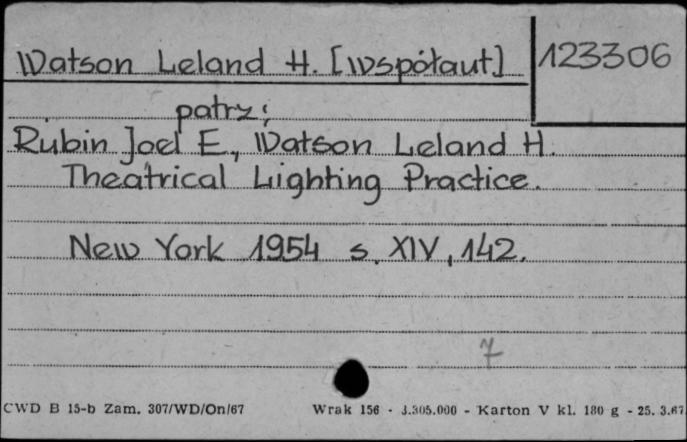 Watson Leland H. [współaut] 123306
patrz:
Rubin Joel E., Watson Leland H.
Theatrical Lighting Practice.
New York 1954 s. XIV, 142.
7
CWD B 15-b Zam. 307/WD/On/67 Wrak 156 - 3.305.000 - Karton V kl. 180 g - 25. 3.67